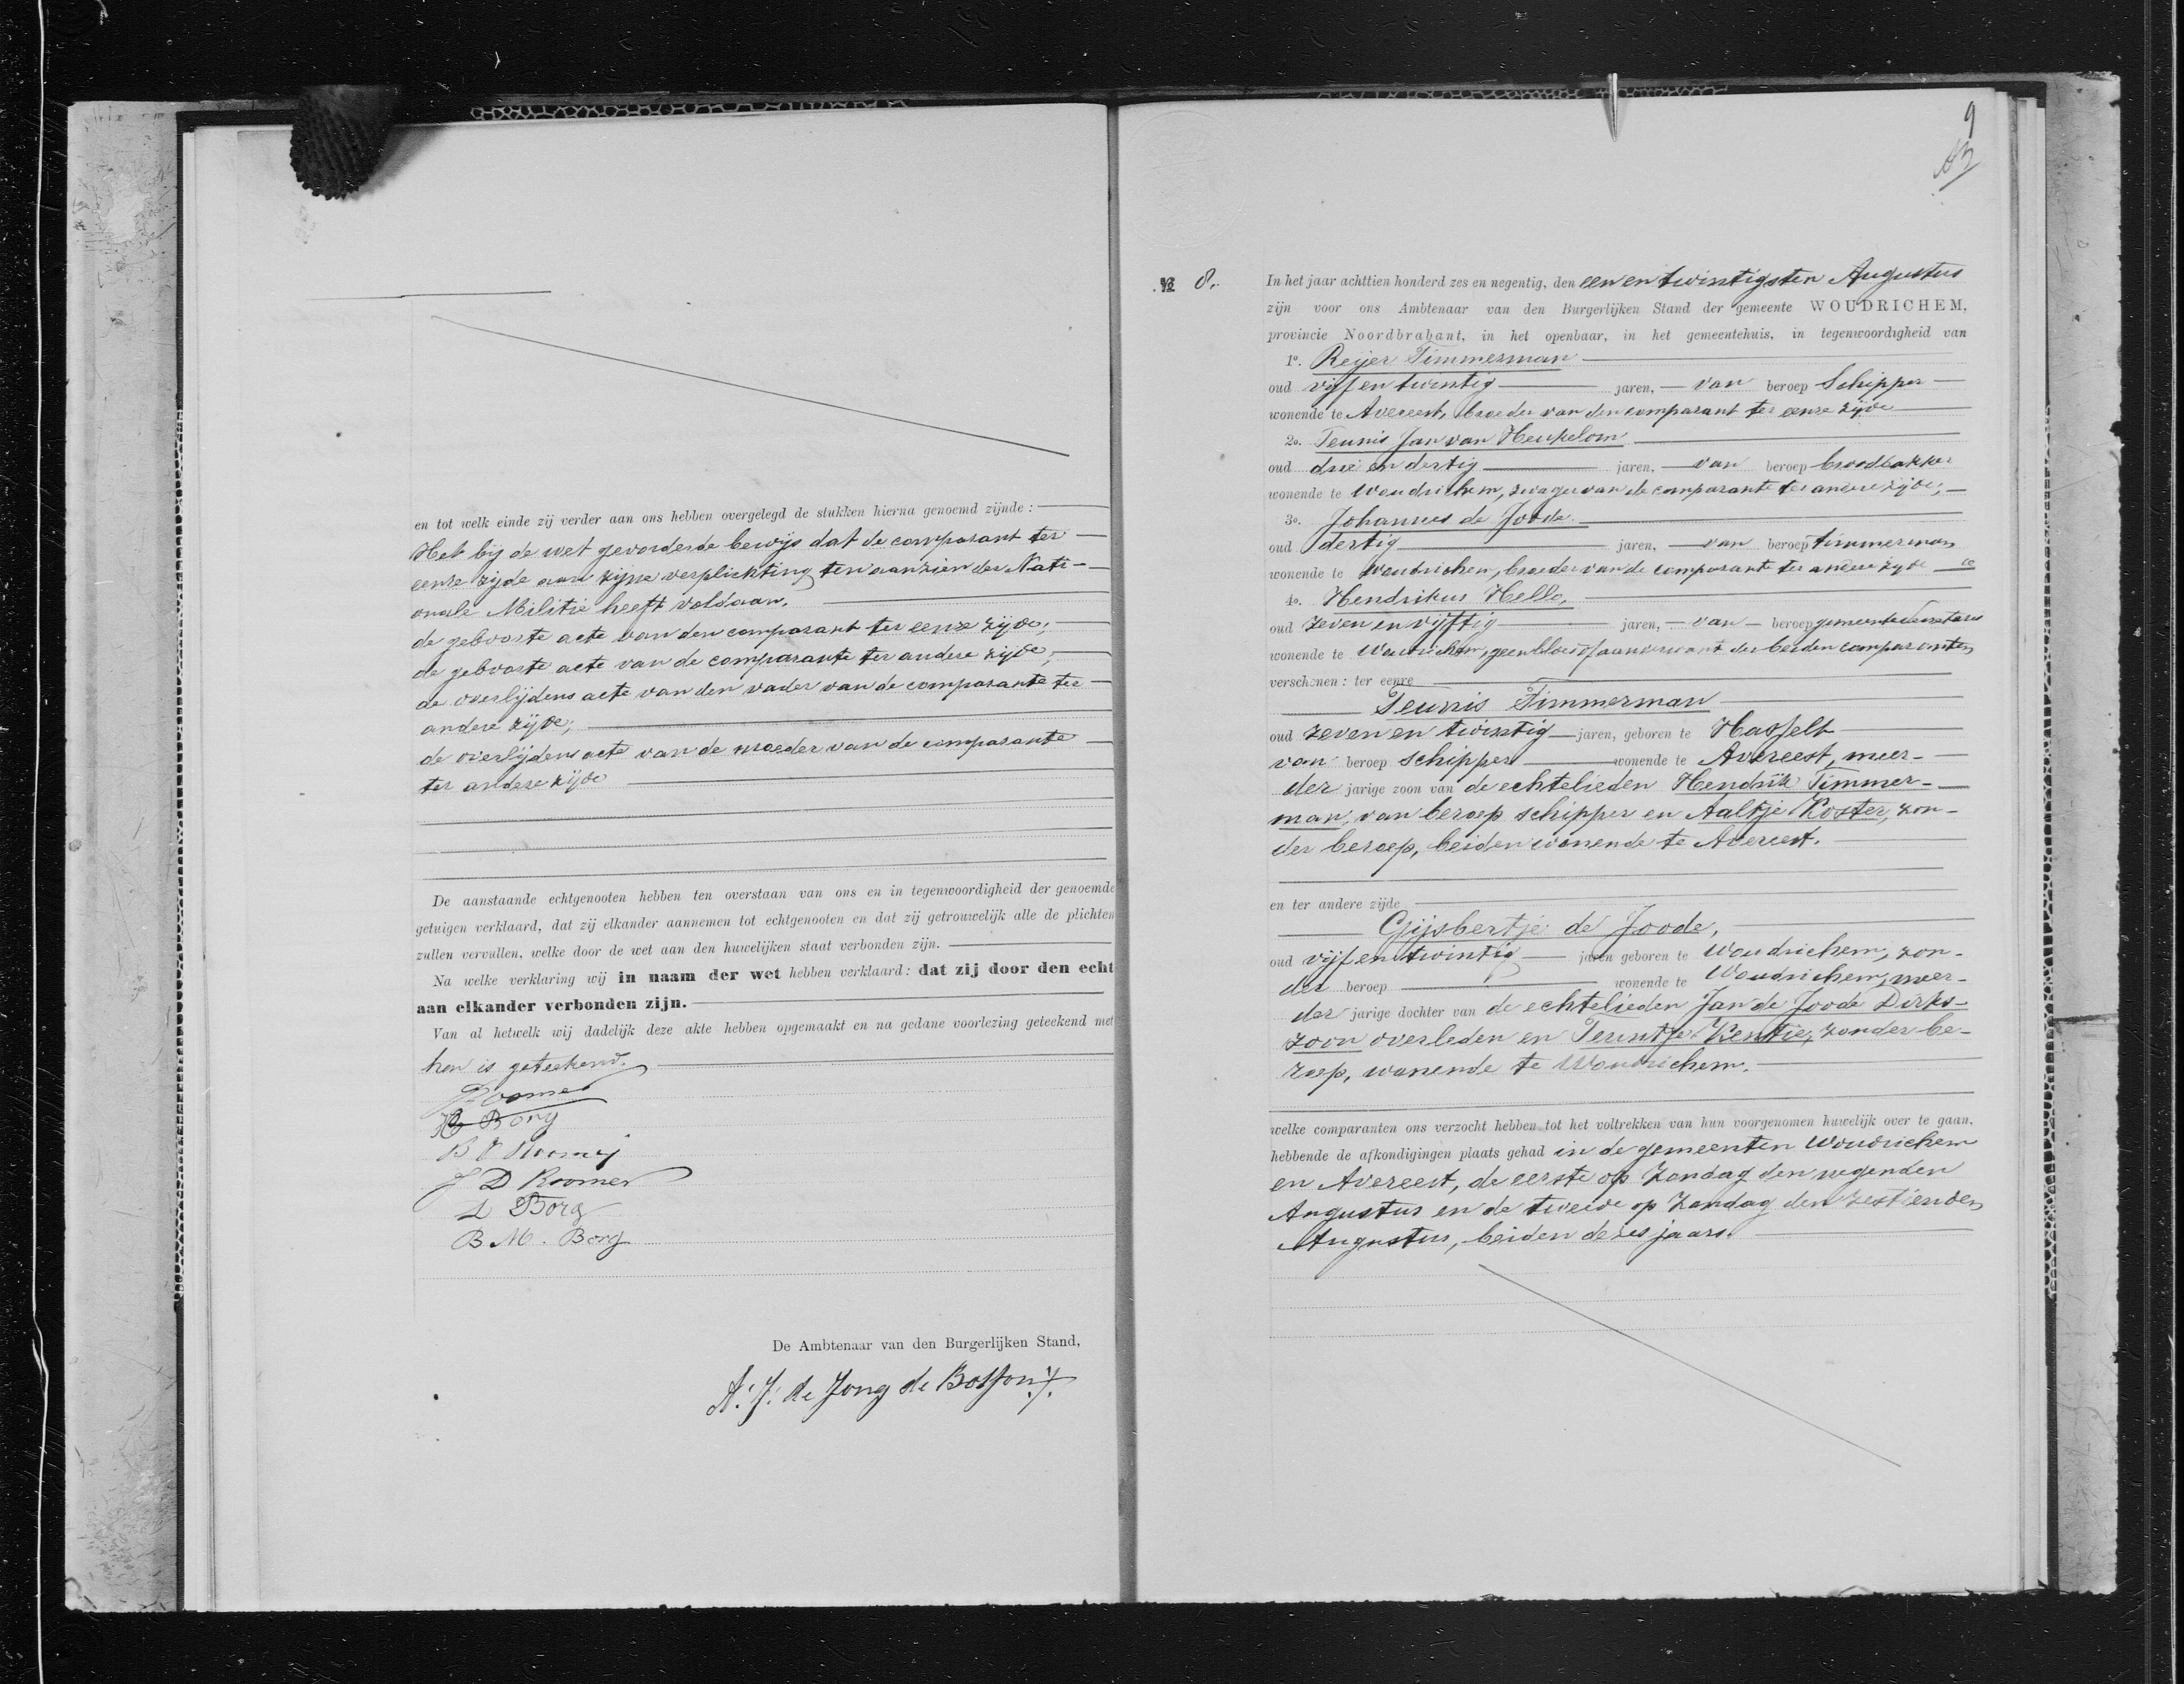 en tot welk einde zij verder aan ons hebben overgelegd de stukken hierna genoemd zijnde :
Het bij de wet gevorderde bewijs dat de comparant ter
eenre zijde aan zijne verplichting ten aanzien der Nati-
onale Militie heeft voldaan.
de geboorte acte van den comparant ter eenre zijde;
de geboorte acte van de comparante ter andere zijde;
de overlijdens acte van den vader van de comparante ter
andere zijde;
de overlijdens acte van de moeder van de comparante
ter andere zijde
De aanstaande echtgenooten hebben ten overstaan van ons en in tegenwoordigheid der genoemde
getuigen verklaard, dat zij elkander aannemen tot echtgenooten en dat zij getrouwelijk alle de plichten
zullen vervullen, welke door de wet aan den huwelijken staat verbonden zijn.
Na welke verklaring wij in naam der wet hebben verklaard: dat zij door den echt
aan elkander verbonden zijn.
Van al hetwelk wij dadelijk deze akte hebben opgemaakt en na gedane voorlezing geteekend met
hen is geteekend.
Borg
B
J D Roomer
L Borg
B. M. Borg
De Ambtenaar van den Burgerlijken Stand,
de Jong de
9
No 8.
In het jaar achttien honderd zes en negentig, den een en twintigsten Augustus
zijn voor ons Ambtenaar van den Burgerlijken Stand der gemeente WOUDRICHEM,
provincie Noordbrabant, in het openbaar, in het gemeentehuis, in tegenwoordigheid van
1o. Reijer Timmerman
oud vijf en twintig jaren, van beroep Schipper
wonende te Avereest, broeder van den comparant ter eenre zijde
2o. Teunis Jan van Heukelom
oud drie en dertig jaren, van beroep broodbakker
wonende te Woudrichem, zwager van de comparante ter andere zijde;
3o. Johannes de Joode
oud dertig jaren, van beroep timmerman
wonende te Woudrichem, broeder van de comparante ter andere zijde
4o. Hendrikus Hello,
oud zeven en vijftig jaren, van beroep gemeentesecretaris
wonende te Woudrichem, geen bloed of aanverwant der beiden comparanten
verschenen: ter eenre
Teunis Timmerman
oud zeven en twintig jaren, geboren te Hasselt
van beroep schipper wonende te Avereest, meer-
der jarige zoon van de echtelieden Hendrik Timmer-
man, van beroep schipper en Aaltje Koster, zon-
der beroep, beiden wonende te Avereest.
en ter andere zijde
Gijsbertje de Joode,
oud vijf en twintig jaren geboren te Woudrichem, zon-
der beroep wonende te Woudrichem, meer-
der jarige dochter van de echtelieden Jan de Joode Dirks-
zoon overleden en Teuntje Kentie, zonder be-
roep, wonende te Woudrichem.
welke comparanten ons verzocht hebben tot het voltrekken van hun voorgenomen huwelijk over te gaan,
hebbende de afkondigingen plaats gehad in de gemeenten Woudrichem
en Avereest, de eerste op Zondag den negenden
Augustus en de tweede op Zondag den zestienden
Augustus, beiden dezes jaars.